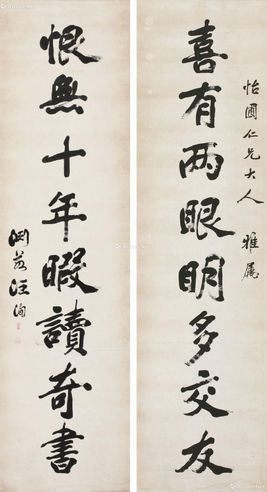 怡圃仁兄大人 雅屬
喜有兩眼明多交友
恨無十年暇讀奇書
淵若汪洵